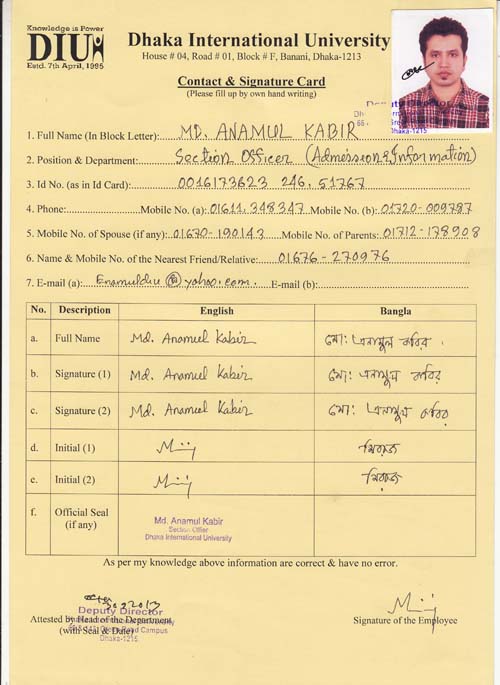 Knowledge is Power
DIU
Estd. 7th April, 1995
Dhaka International University
House # 04, Road # 01, Block # F, Banani, Dhaka-1213
Contact & Signature Card
(Please fill up by own hand writing)
Dhaka-1215
1. Full Name (In Block Letter): MD. ANAMUL KABIR
2. Position & Department: Section Officer (Admission & Information)
3. Id No. (as in Id Card): 0016173623 246, 51767
4. Phone: Mobile No. (a): 01611.348347 Mobile No. (b): 01720-009787
5. Mobile No. of Spouse (if any): 01670-190143 Mobile No. of Parents: 01712-178908
6. Name & Mobile No. of the Nearest Friend/Relative: 01676-270976
7. E-mail (a): Enamuldiu@yahoo.com. E-mail (b):
No. Description English Bangla
a. Full Name Md. Anamul Kabir মো: এনামুল কবির
b. Signature (1) Md. Anamul Kabir মো: এনামুল কবির
c. Signature (2) Md. Anamul Kabir মো: এনামুল কবির
d. Initial (1)
e. Initial (2)
f. Official Seal (if any)
Md. Anamul Kabir
Section Offier
Dhaka International University
As per my knowledge above information are correct & have no error.
Deputy Director
Attested by Head of the Department
(with Seal & Date)
Road Campus
Dhaka-1215
Signature of the Employee